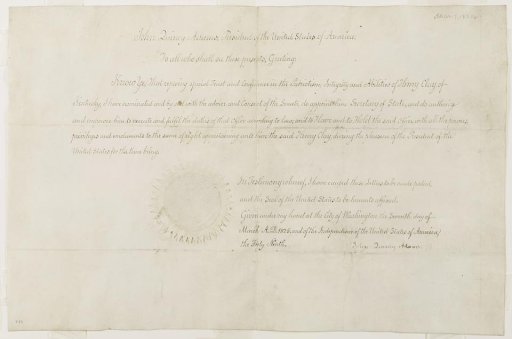 John Quincy Adams, President of the United States of America,
To all who shall see these presents, Greeting:
Know Ye, That reposing special Trust and Confidence in the Patriotism, Integrity and Abilities of Henry Clay, of
Kentucky, I have nominated and by and with the advice and Consent of the Senate, do appoint him Secretary of State, and do authorize
and empower him to execute and fulfil the duties of that Office according to law; and to Have and to Hold the said Office, with all the powers,
privileges and emoluments to the same of right appertaining unto him the said Henry Clay, during the pleasure of the President of the
United States for the time being.
In Testimony whereof, I have caused these Letters to be made patent,
and the Seal of the United States to be hereunto affixed.
Given under my hand at the City of Washington the Seventh day of
March A.D. 1825, and of the Independence of the United States of America,
the Forty Ninth.
John Quincy Adams